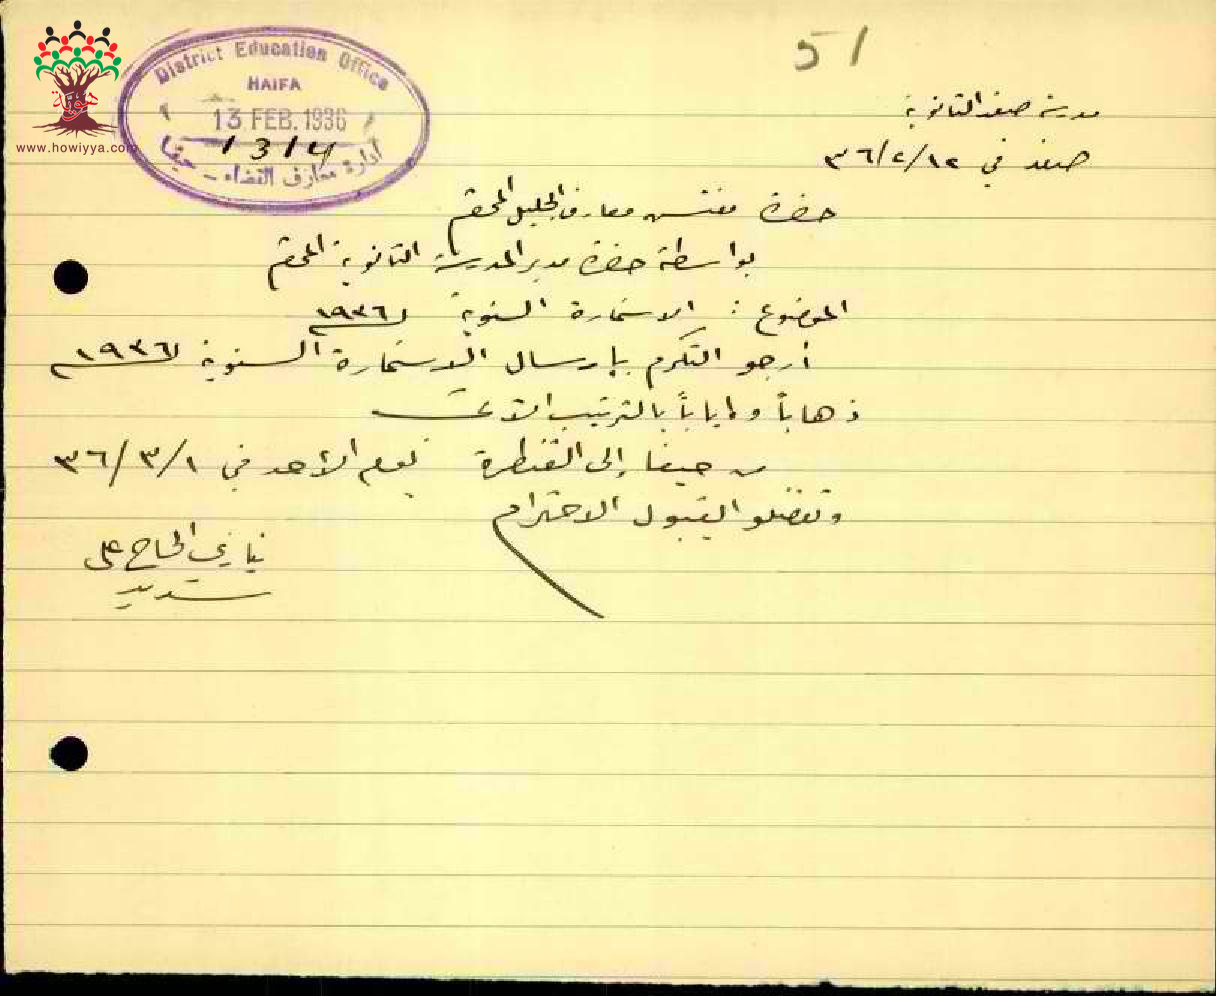 51
District Education Office
HAIFA
13 FEB. 1936
1314
ادارة معارف القضاء - حيفا
هوية
www.howiyya.com
مدرسة صفد الثانوية
صفد في ٣٦/٢/١٢
حضرة مفتش معارف الجليل المحترم
بواسطة حضرة مدير المدرسة الثانوية المحترم
الموضوع : الاستمارة السنوية لـ ١٩٣٦م
أرجو التكرم بإرسال الاستمارة السنوية لـ ١٩٣٦م
ذهاباً وإياباً بالترتيب الآتي
من حيفا إلى القنطرة يوم الأحد في ٣٦/٣/١
وتفضلوا بقبول الاحترام
نيازي الحاج علي